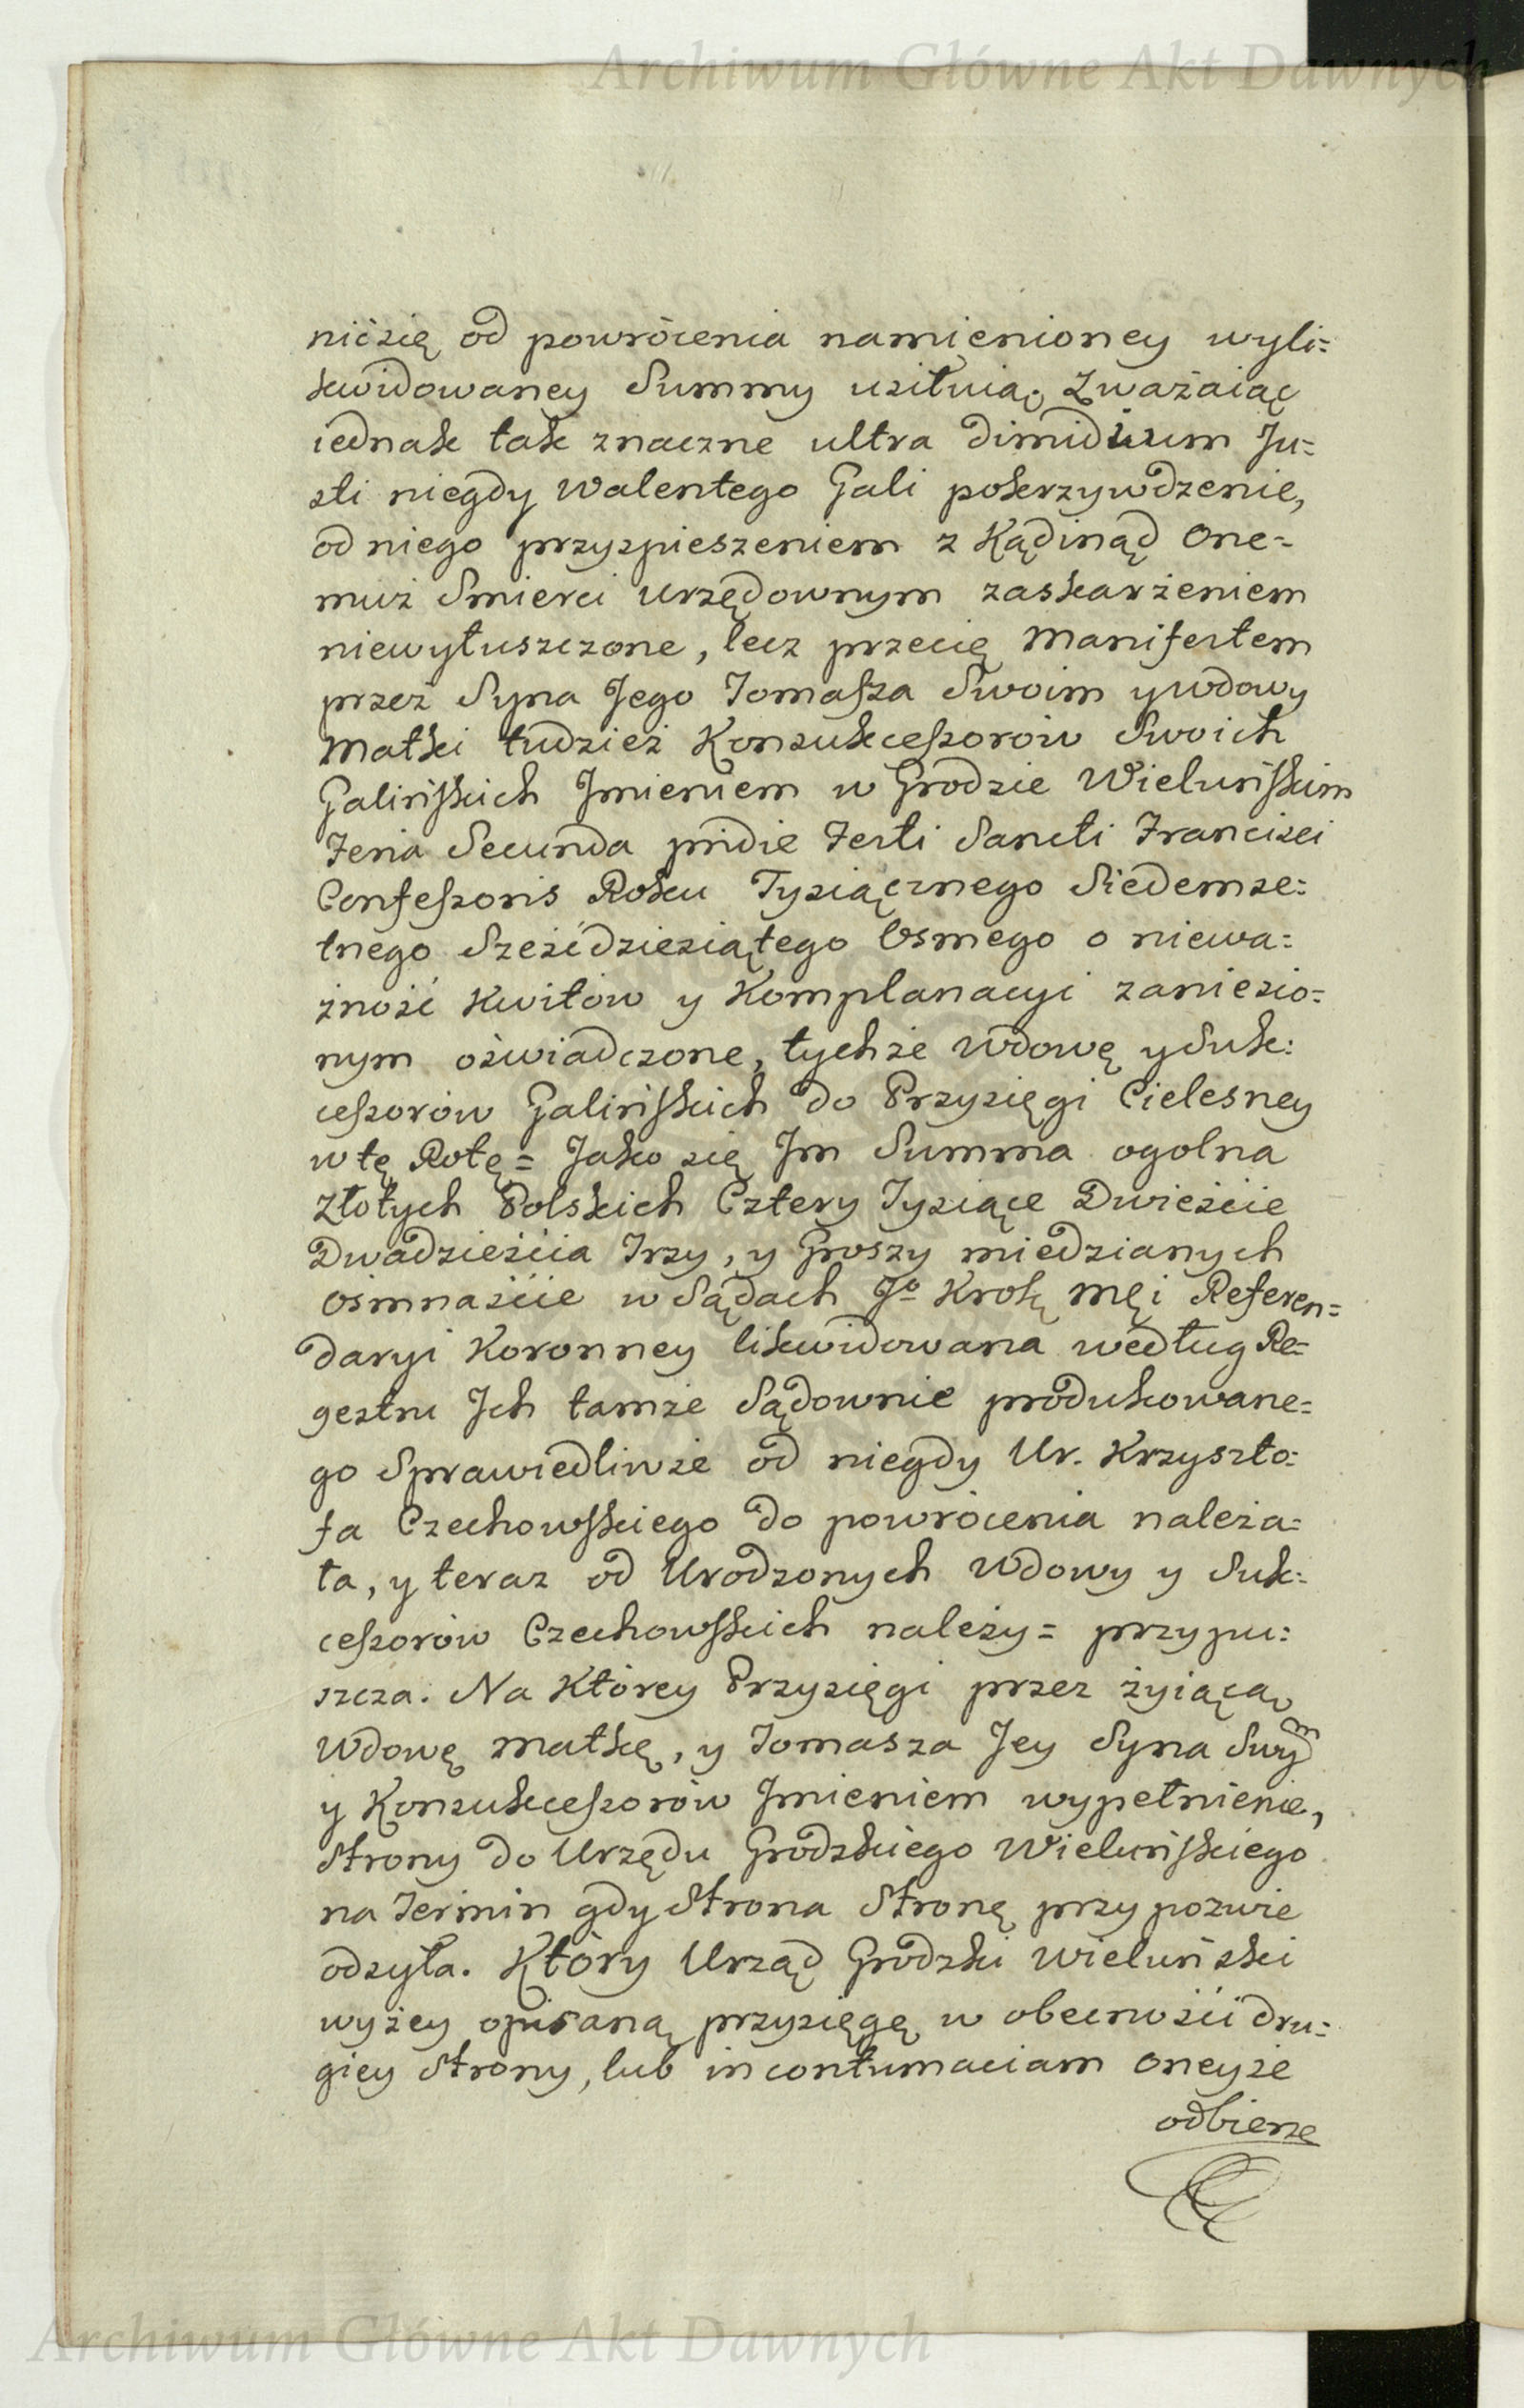 Archiwum Główne Akt Dawnych
nić się od powrócenia namienioney wyli=
kwidowaney Summy usiłuią. Zważaiąc
iednak tak znaczne ultra dimidium Ju=
sti niegdy Walentego Gali pokrzywdzenie,
od niego przyspieszeniem z Kądinąd One=
muż Smierci urzędownym zaskarżeniem
niewyłuszczone, lecz przecię Manifestem
przez Syna Jego Tomasza Swoim y wdowy
Matki tudzież Konsukcessorów Swoich
Galińskich Jmieniem w Grodzie Wieluńskim
Feria Secunda pridie Festi Sancti Francisci
Confessoris Roku Tysiącznego Siedemse=
tnego Sześćdziesiątego Osmego o niewa=
żność Kwitów y Komplanacyi zaniesio=
nym oświadczone, tychże Wdowę y Suk=
cessorów Galińskich do Przysięgi Cielesney
w tę Rotę = Jako się Jm Summa ogolna
Złotych Polskich Cztery Tysiące Dwieście
Dwadzieścia Trzy, y Groszy miedzianych
Osimnaście w Sądach Jº Krolę Męi Referen=
daryi Koronney likwidowana według Re=
gestru Jch tamże Sądownie produkowane=
go Sprawiedliwże od niegdy Ur. Krzyszto=
fa Czechowskiego do powrócenia należa=
ła, y teraz od Urodzonych Wdowy y Suk=
cessorów Czechowskich należy = przypu=
szcza. Na Którey Przysięgi przez żyiącą
Wdowę Matkę, y Tomasza Jey Syna Swym
y Konsukcessorów Jmieniem wypełnienie,
Strony do Urzędu Grodzkiego Wieluńskiego
na Termin gdy Strona Stronę przypozwie
odsyła. Który Urząd Grodzki Wieluński
wyżey opisaną przysięgę w obecności dru=
giey Strony, lub in contumaciam oneyże
odbierze
Archiwum Główne Akt Dawnych